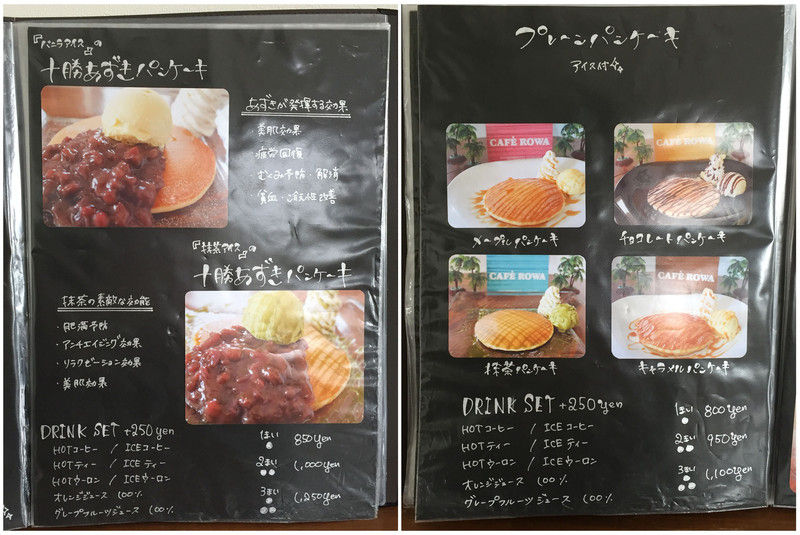 『バニラアイス』の
十勝あずきパンケーキ
あずきが発揮する効果
・美肌効果
・疲労回復
・むくみ予防・解消
・貧血・冷え性改善
『抹茶アイス』の
十勝あずきパンケーキ
抹茶の素敵な効能
・肥満予防
・アンチエイジング効果
・リラクゼーション効果
・美肌効果
DRINK SET +250yen
HOTコーヒー / ICEコーヒー
HOTティー / ICEティー
HOTウーロン / ICEウーロン
オレンジジュース 100%
グレープフルーツジュース 100%
1まい 850yen
2まい 1,000yen
3まい 1,250yen
プレーンパンケーキ
アイス付
CAFÉ ROWA
CAFÉ ROWA
メープルパンケーキ
チョコレートパンケーキ
CAFÉ ROWA
CAFÉ ROWA
抹茶パンケーキ
キャラメルパンケーキ
DRINK SET +250yen
HOTコーヒー / ICEコーヒー
HOTティー / ICEティー
HOTウーロン / ICEウーロン
オレンジジュース 100%
グレープフルーツジュース 100%
1まい 800yen
2まい 950yen
3まい 1,100yen